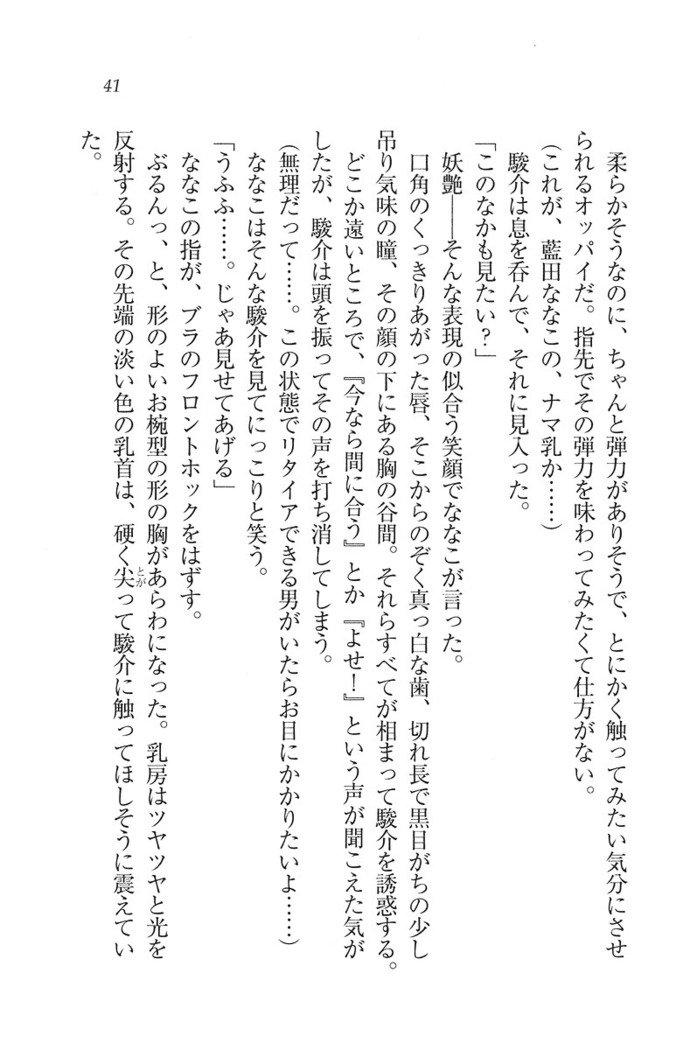 41
柔らかそうなのに、ちゃんと弾力がありそうで、とにかく触ってみたい気分にさせ
られるオッパイだ。指先でその弾力を味わってみたくて仕方がない。
(これが、藍田ななこの、ナマ乳か……)
駿介は息を呑んで、それに見入った。
「このなかも見たい?」
妖艶――そんな表現の似合う笑顔でななこが言った。
口角のくっきりあがった唇、そこからのぞく真っ白な歯、切れ長で黒目がちの少し
吊り気味の瞳、その顔の下にある胸の谷間。それらすべてが相まって駿介を誘惑する。
どこか遠いところで、『今なら間に合う』とか『よせ!』という声が聞こえた気が
したが、駿介は頭を振ってその声を打ち消してしまう。
(無理だって……。この状態でリタイアできる男がいたらお目にかかりたいよ……)
ななこはそんな駿介を見てにっこりと笑う。
「うふふ……。じゃあ見せてあげる」
ななこの指が、ブラのフロントホックをはずす。
ぶるんっ、と、形のよいお椀型の形の胸があらわになった。乳房はツヤツヤと光を
反射する。その先端の淡い色の乳首は、硬く尖って駿介に触ってほしそうに震えてい
とが
た。